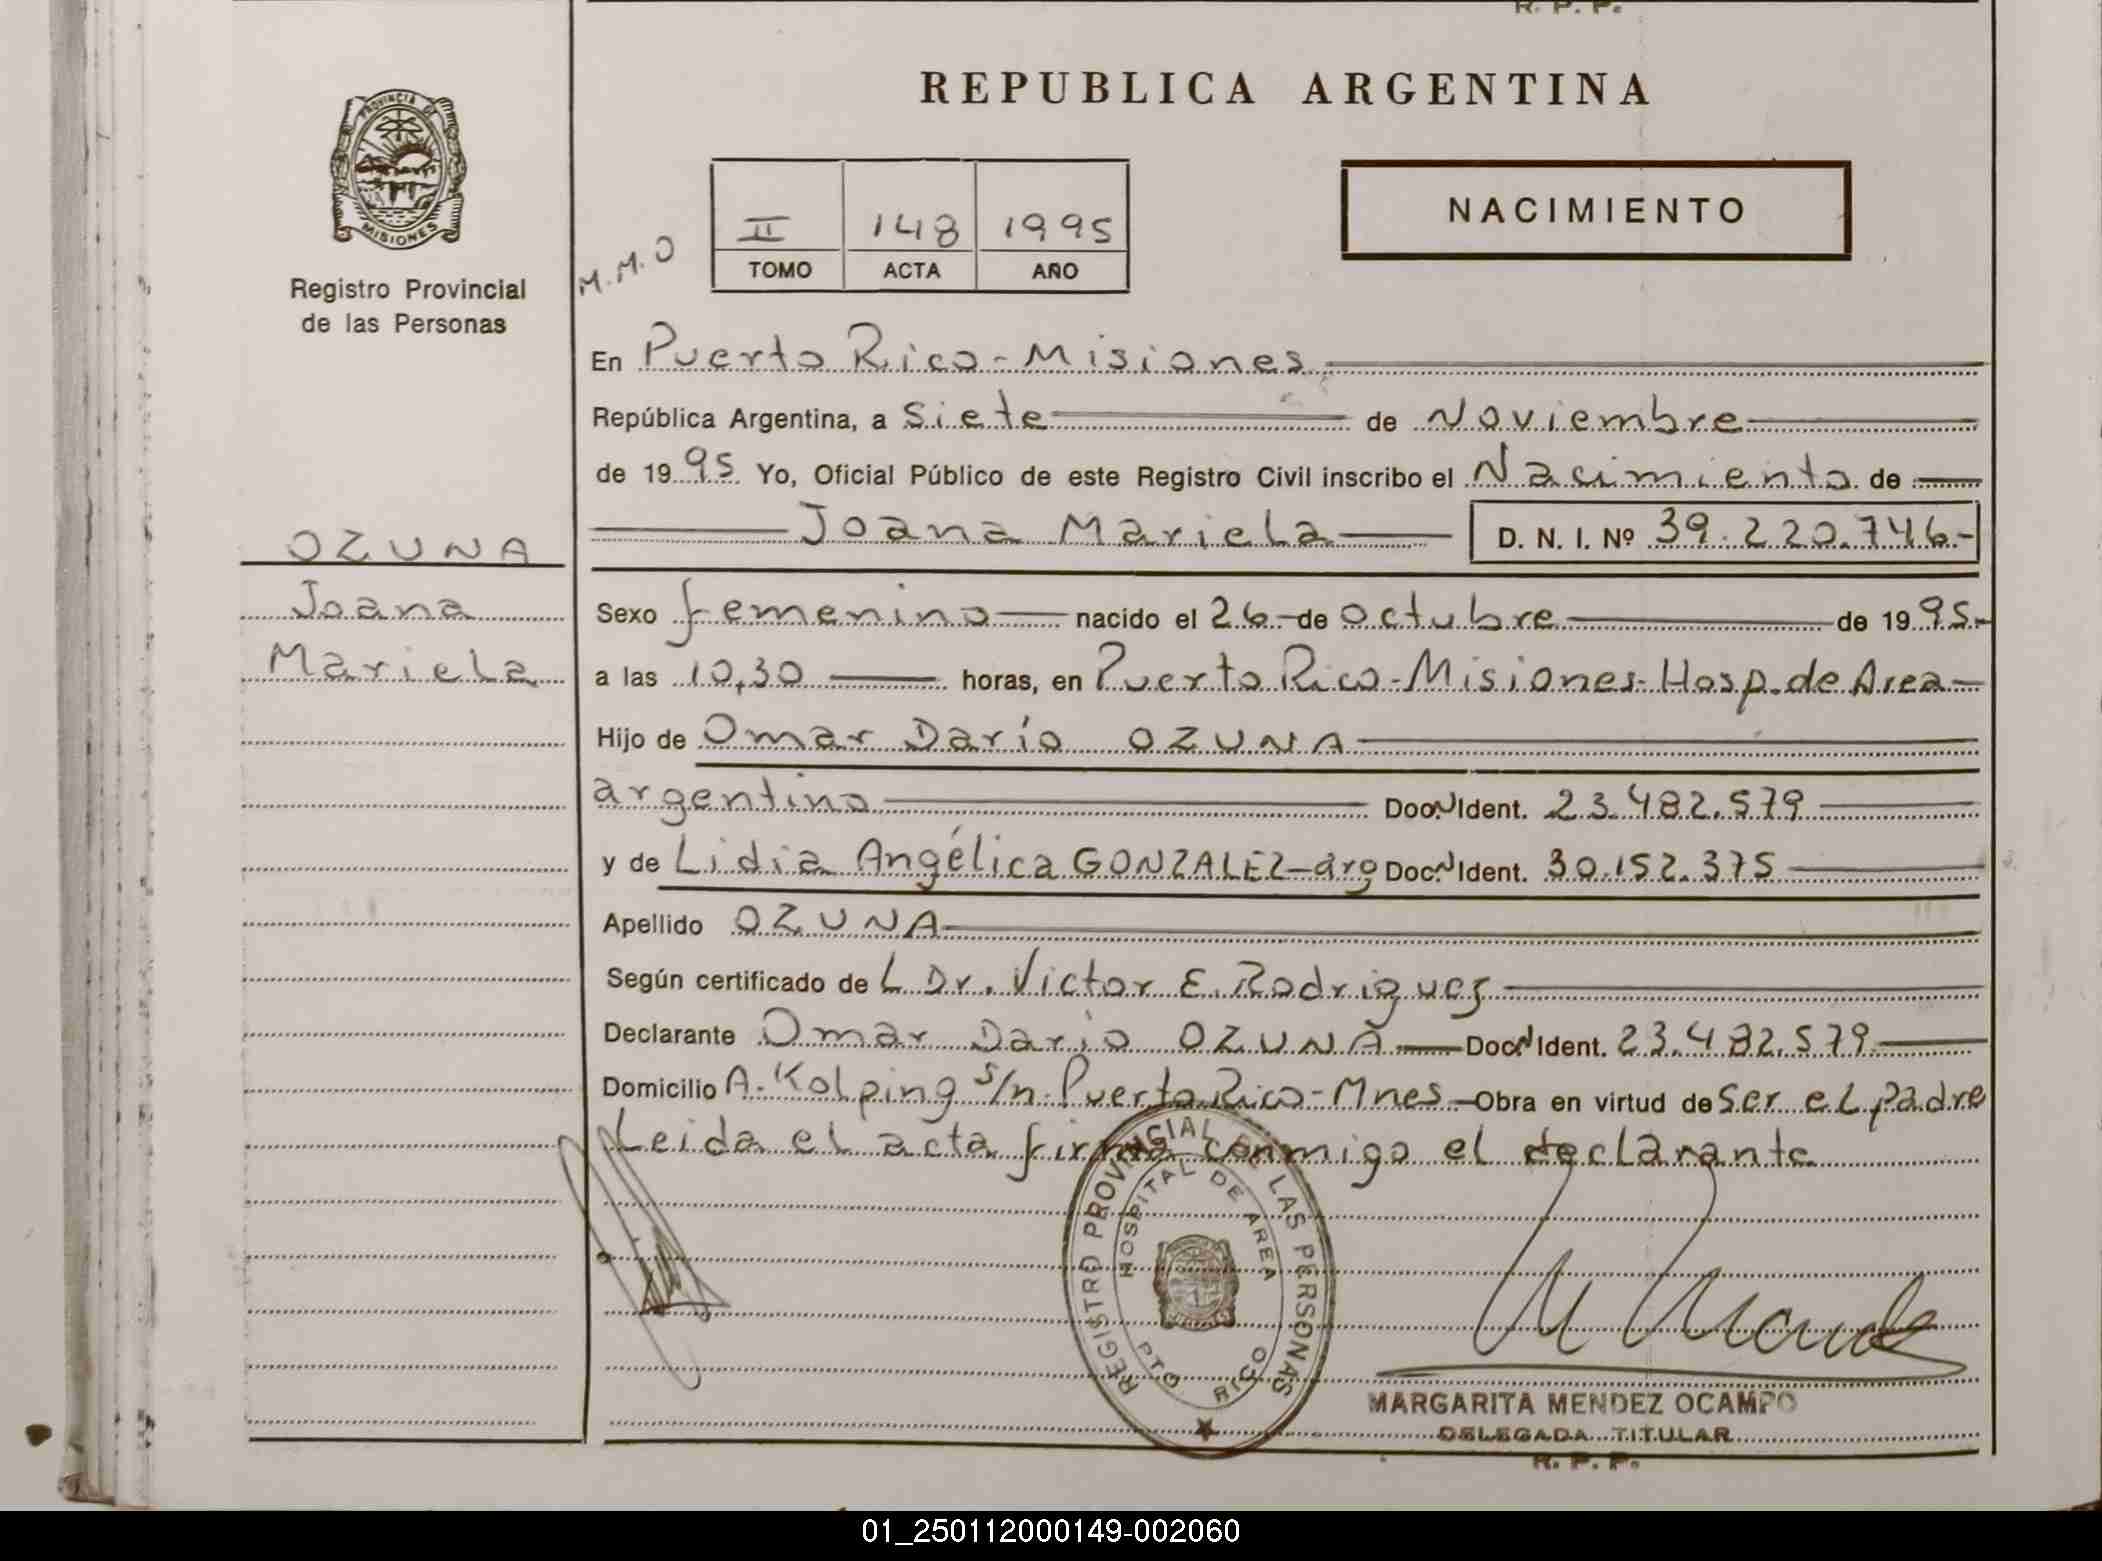 R. P. P.
REPUBLICA ARGENTINA
PROVINCIA DE MISIONES
Registro Provincial
de las Personas
M.M.O
II 148 1995
TOMO ACTA AÑO
NACIMIENTO
En Puerto Rico - Misiones
República Argentina, a Siete de Noviembre
de 1995 Yo, Oficial Público de este Registro Civil inscribo el Nacimiento de
Joana Mariela D. N. I. Nº 39.220.746.-
OZUNA
Joana
Mariela
Sexo femenino nacido el 26 de octubre de 1995.-
a las 10,30 horas, en Puerto Rico - Misiones - Hosp. de Area
Hijo de Omar Darío OZUNA
argentino Doc. N Ident. 23.482.579
y de Lidia Angélica GONZALEZ - arg Doc. N Ident. 30.152.375
Apellido OZUNA
Según certificado de L Dr. Victor E. Rodriguez
Declarante Omar Dario OZUNA Doc. N Ident. 23.482.579
Domicilio A. Kolping s/n. Puerto Rico - Mnes - Obra en virtud de ser el padre
Leida el acta firma conmigo el declarante
REGISTRO PROVINCIAL DE LAS PERSONAS
HOSPITAL DE AREA
PTO RICO
MARGARITA MENDEZ OCAMPO
DELEGADA TITULAR
R. P. P.
01_250112000149-002060